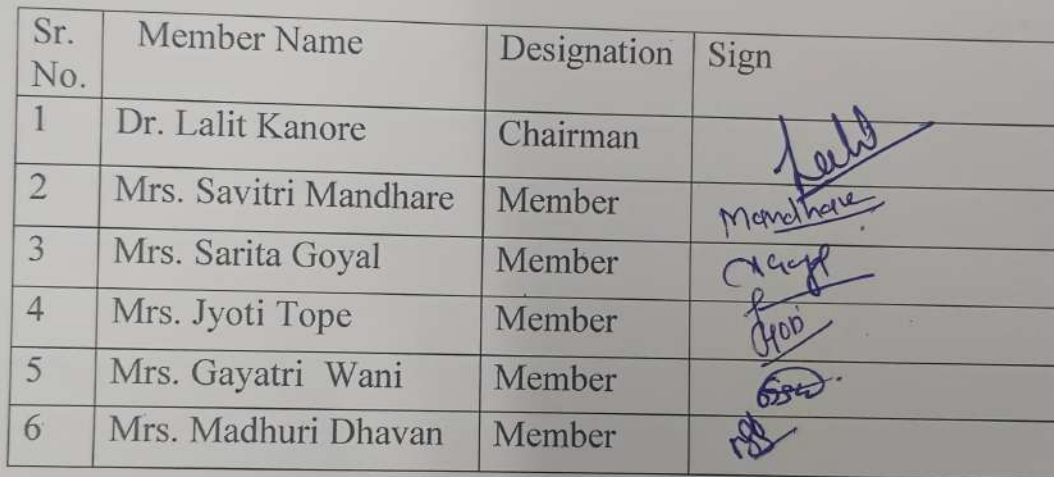 Sr. No. Member Name Designation Sign
1 Dr. Lalit Kanore Chairman
2 Mrs. Savitri Mandhare Member Mandhare
3 Mrs. Sarita Goyal Member
4 Mrs. Jyoti Tope Member
5 Mrs. Gayatri Wani Member
6 Mrs. Madhuri Dhavan Member